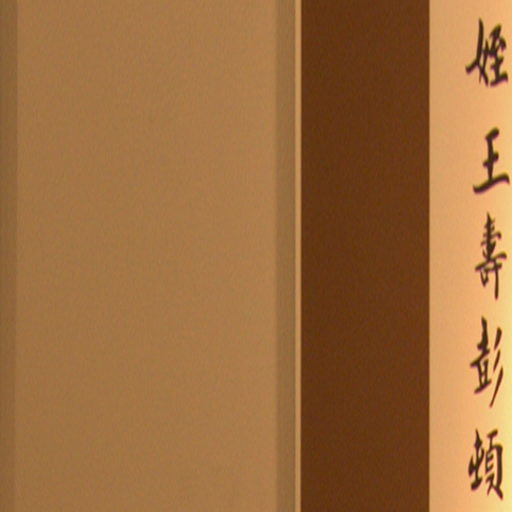 姪王壽彭頓